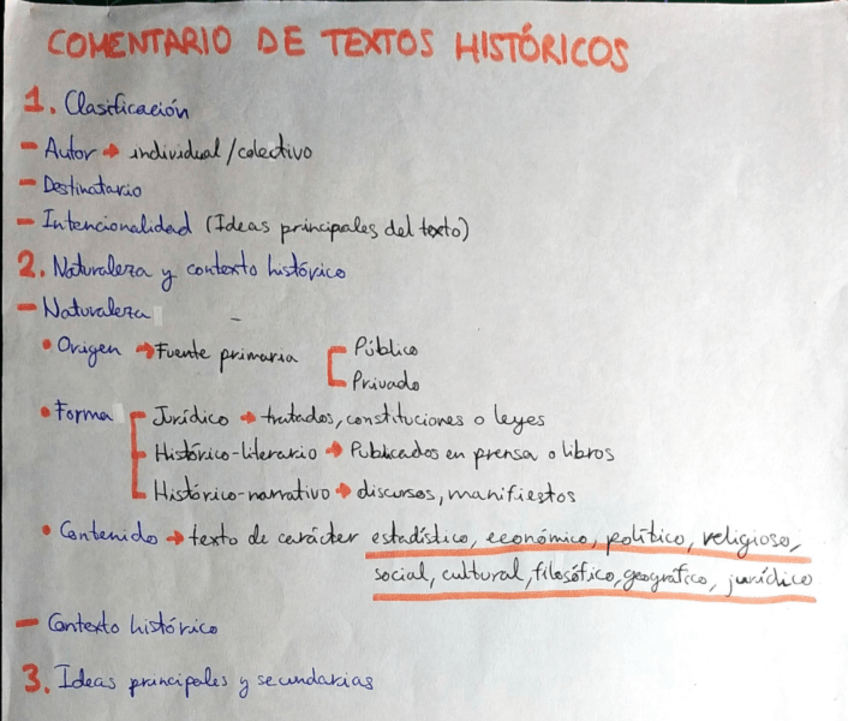 COMENTARIO DE TEXTOS HISTÓRICOS
1. Clasificación
- Autor → individual/colectivo
- Destinatario
- Intencionalidad (Ideas principales del texto)
2. Naturaleza y contexto histórico
- Naturaleza
• Origen → Fuente primaria
Público
Privado
• Forma
Jurídico → tratados, constituciones o leyes
Histórico-literario → Publicados en prensa o libros
Histórico-narrativo → discursos, manifiestos
• Contenido → texto de carácter estadístico, económico, político, religioso,
social, cultural, filosófico, geográfico, jurídico
- Contexto histórico
3. Ideas principales y secundarias